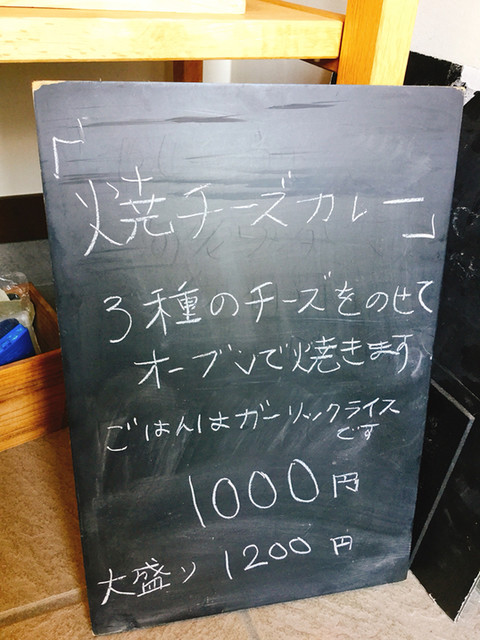 「焼チーズカレー」
3種のチーズをのせて
オーブンで焼きます
ごはんはガーリックライス
です
1000円
大盛り 1200円